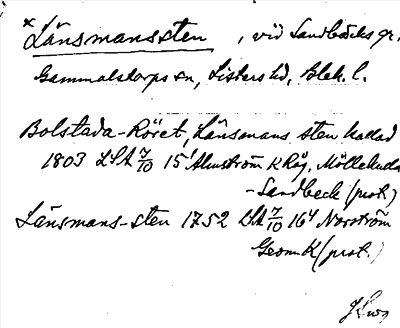 x Länsmanssten, vid Sandbäcks gr.
Gammalstorps sn, Listers hd, Blek. l.
Bolstada-Röret, Länsmans sten kallad
1803 LSA 7/10 15 Almström K Räg. Möllekulla
-Sandbeck (prot.)
Länsmans-sten 1752 LSA 7/10 16 Norström
Geom K (prot.)